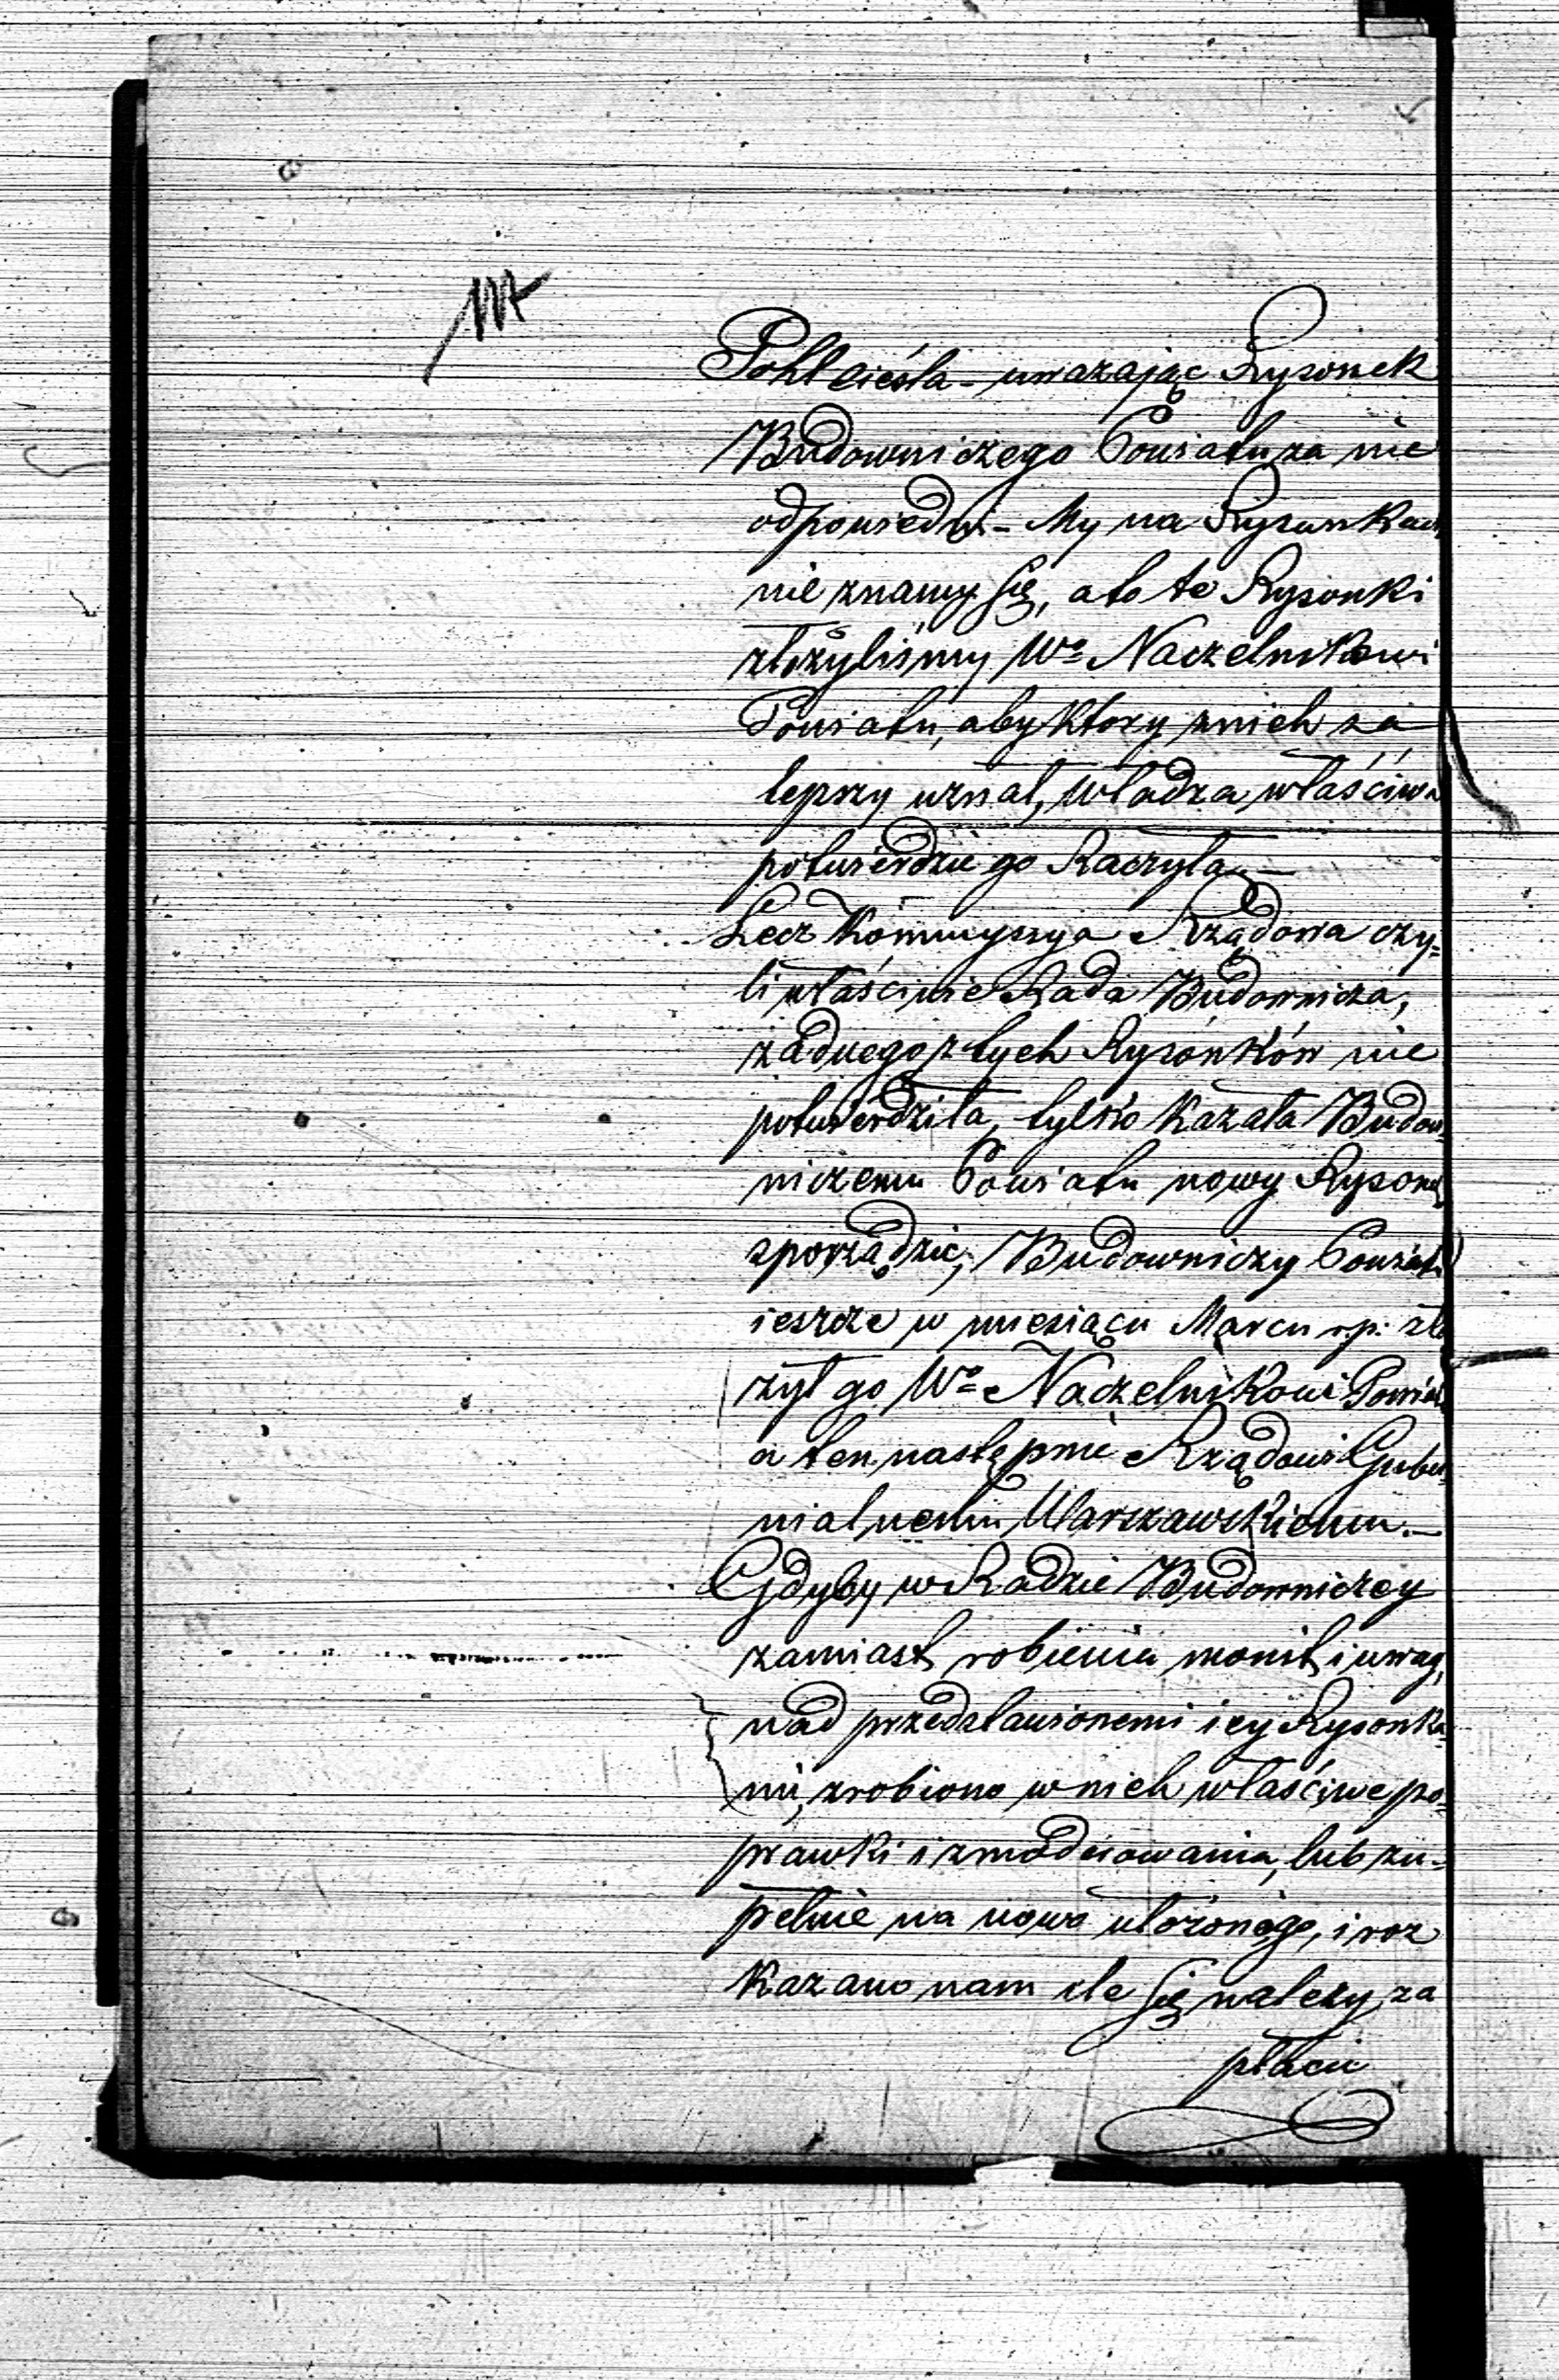 Pohl cieśla – uważając Rysonek
Budowniczego Powiatu za nie
odpowiedni – My na Rysunkach
nie znamy się, a to te Rysonki
złożyliśmy Wº Naczelnikowi
Powiatu, aby ktory znich za
lepszy uznał, władza właściwa
potwierdzić go Raczyła –
Lecz Kommyssya Rządowa czy=
li właściwie Rada Budownicza,
żadnego z tych Rysonków nie
potwierdziła, tylko kazała Budow=
niczemu Powiatu nowy Rysonek
sporządzić, Budowniczy Powiatu
ieszcze w miesiącu Marcu r.p. zło
żył go Wº Naczelnikowi Powiatu
a ten następnie Rządowi Guber=
nialnemu Warszawskiemu. –
Gdyby w Radzie Budowniczey
zamiast robienia monit i uwag,
nad przedstawionemi iey Rysonka=
mi, zrobiono w nich właściwe po=
prawki i zmodelowania, lub zu=
pełnie na nowo ułożonego, i roz
kazano nam ile się należy za
płacić